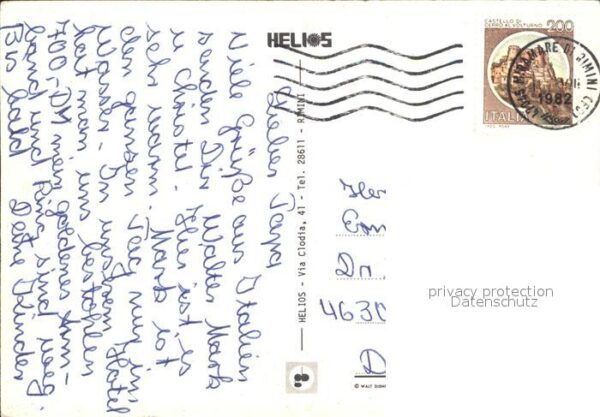 Lieber Papa
Viele Grüße aus Italien
senden Dir Walter Mark
u Christel. Hier ist es
sehr warm. Mark ist
den ganzen Tag nur im
Wasser. In unserem Hotel
hat man uns bestohlen
700,-DM mein goldenes Arm-
band und Ring sind weg.
Bis bald Deine Kinder
HELIOS
HELIOS - Via Clodia, 41 - Tel. 28611 - RIMINI
© WALT DISNEY
CASTELLO DI
CERRO AL VOLTURNO
200
ITALIA
MIRAMARE DI RIMINI
1982
4630
D
privacy protection
Datenschutz